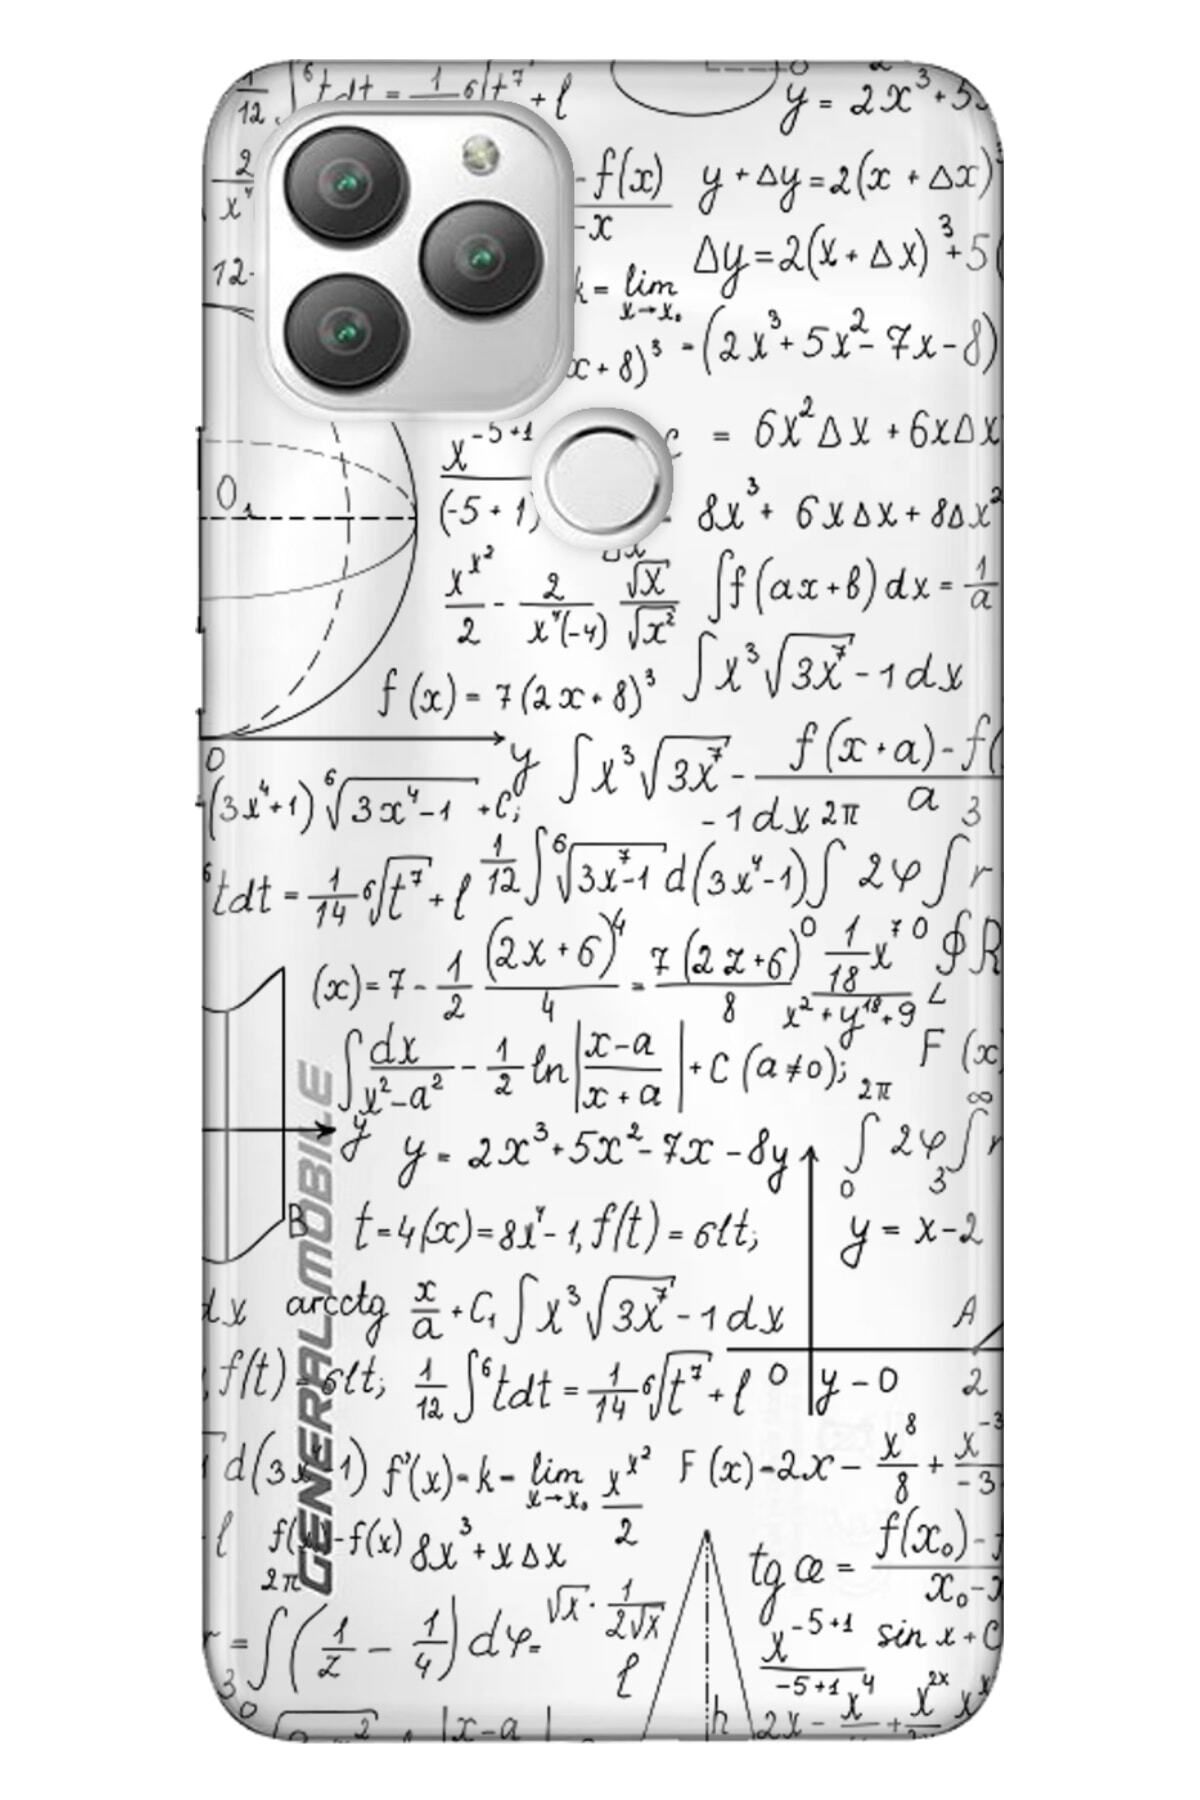 1/12 ∫ ⁶tdt = 1/ ⁶√t⁷ + l
y = 2x³+5
2/x⁴
-f(x)/-x
y + Δy = 2(x + Δx)
12·
Δy = 2(x + Δx)³ + 5(
k = lim x→x₀
x + 8)³ - (2x³ + 5x² - 7x - 8)
x⁻⁵⁺¹/(-5+1)
c = 6x²Δx + 6xΔx
O₁
8x³ + 6xΔx + 8Δx²
Δx
x^x²/2 - 2/x⁴(-4) √x/√x²
∫f(ax+b)dx = 1/a
f(x) = 7(2x+8)³
∫x³√3x⁷ - 1dx
0
y
∫x³√3x⁷ - f(x+a)-f(/a
(3x⁴+1) ⁶√3x⁴-1 + C;
-1dx 2π 3
⁶tdt = 1/14 ⁶√t⁷ + l
1/12 ∫ ⁶√3x⁷-1 d(3x⁴-1) ∫ 2φ ∫ r
(x) = 7 - 1/2 (2x+6)⁴/4 = 7(2z+6)⁰/8
1/18 x⁷⁰/x²+y¹⁸+9
∮R
L
∫dx/x²-a² - 1/2 ln|x-a/x+a| + C (a≠0);
F (x
y
y = 2x³+5x²-7x-8
y
2π ∫ 0 2φ ∞ ∫ 3 r
B
t=4(x)=8x⁴-1, f(t)=6lt;
y = x-2
dx arcctg x/a + C₁ ∫x³√3x⁷ - 1dx
A
, f(t) = 6lt; 1/12 ∫ ⁶tdt = 1/14 ⁶√t⁷ + l
0 y-0 2
GENERAL MOBILE
d(3x⁴-1) f'(x)=k= lim x→x₀ x^x²/2
F(x)=2x - x⁸/8 + x⁻³/-3
l f(x)-f(x) 8x³+xΔx
2π
tg æ = f(x₀)-f/x₀-x
r = ∫ 3 0 (1/z - 1/4)dφ=
√x · 1/2√x
l
x⁻⁵⁺¹/-5+1
sin x + C
h
2x - x⁴ + x²ˣ x^x
|x-a|